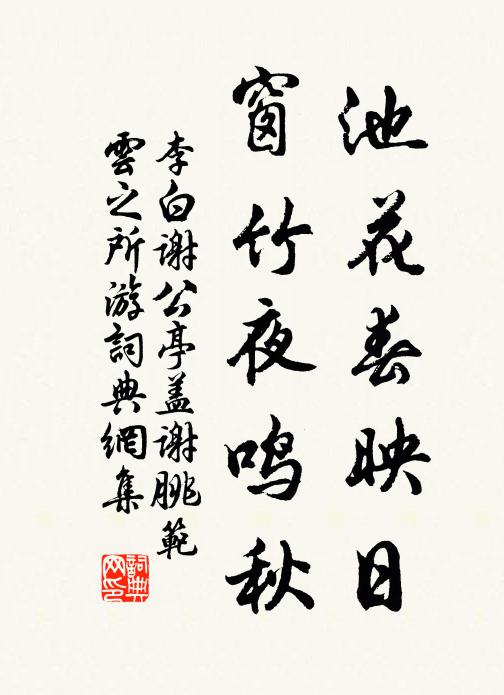 池花春映日
窗竹夜鸣秋
李白谢公亭盖谢脁範
雲之所游詞典網集
詞典
网印